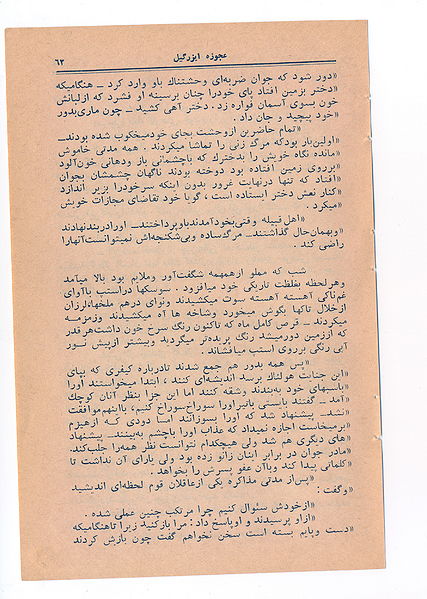 عجوزه ایزرگیل
۶۳
«دور شود که جوان ضربه‌ای وحشتناک باو وارد کرد – هنگامیکه
«دختر بزمین افتاد پای خودرا چنان برسینه او فشرد که ازلبانش
«خون بسوی آسمان فواره زد. دختر آهی کشید – چون ماری بدور
«خود پیچید و جان داد.
«تمام حاضرین ازوحشت بجای خودمیخکوب شده بودند–
«اولین بار بودکه مرگ زنی را تماشا میکردند. همه مدتی خاموش
«مانده نگاه خویش را بدخترک که باچشمانی باز ودهانی خون‌آلود
«برروی زمین افتاده بود دوخته بودند ناگهان چشمشان بجوان
«افتاد که تنها درنهایت غرور بدون اینکه سرخودرا بزیر اندازد
«کنار نعش دختر ایستاده است، گویا خود تقاضای مجازات خویش
«میکرد.
«اهل قبیله وقتی بخودآمدند باو پرداختند– اورا دربند نهادند
«وبهمان حال گذاشتند– مرگ ساده وبی‌شکنجه‌اش نمیتوانست آنهارا
راضی کند.
شب که مملو ازهمهمه شگفت‌آور وملایم بود بالا میآمد
وهر لحظه بغلظت تاریکی خود میافزود. سوسکها دراستپ باآوای
غم‌ناکی آهسته آهسته سوت میکشیدند ونوای درهم ملخها، لرزان
ازخلال تاکها بگوش میخورد وشاخه ها آه میکشیدند وزمزمه
میکردند – قرص کامل ماه که تاکنون رنگ سرخ خون داشت هرقدر
که اززمین دورمیشد رنگ پریده‌تر میگردید وبیشتر ازپیش نور
آبی رنگی برروی استپ میافشاند.
«پس همه بدور هم جمع شدند تادرباره کیفری که بپای
«این جنایت هولناک برسد اندیشه‌ای کنند، ابتدا میخواستند اورا
«باسبهای خود به‌بندند وشقه کنند اما این جزا بنظر آنان کوچک
«آمد – گفتند بایستی باتیر اورا سوراخ سوراخ کنیم، بااینهم موافقت
«نشد– پیشنهاد شد که اورا بسوزانند اما دودی که ازهیزم
«برمیخاست اجازه نمیداد که عذاب اورا باچشم به‌بینند– پیشنهاد
«های دیگری هم شد ولی هیچکدام نتوانست نظر همه‌را جلب کند.
«مادر جوان در برابر اینان زانو زده بود ولی یارای آن نداشت تا
«کلماتی پیدا کند وباآن عفو پسرش را بخواهد.
«پس از مدتی مذاکره یکی ازعاقلان قوم لحظه‌ای اندیشید
«وگفت:
«ازخودش سئوال کنیم چرا مرتکب چنین عملی شده.
«ازاو پرسیدند و اوپاسخ داد: مرا بازکنید زیرا تاهنگامیکه
«دست وپایم بسته است سخن نخواهم گفت چون بازش کردند